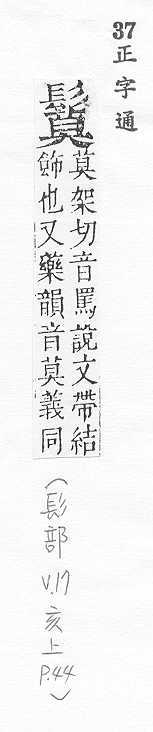 37正字通
鬕
莫架切音罵說文帶結
飾也又藥韻音莫義同
(髟部 V.17 亥上 P.44)